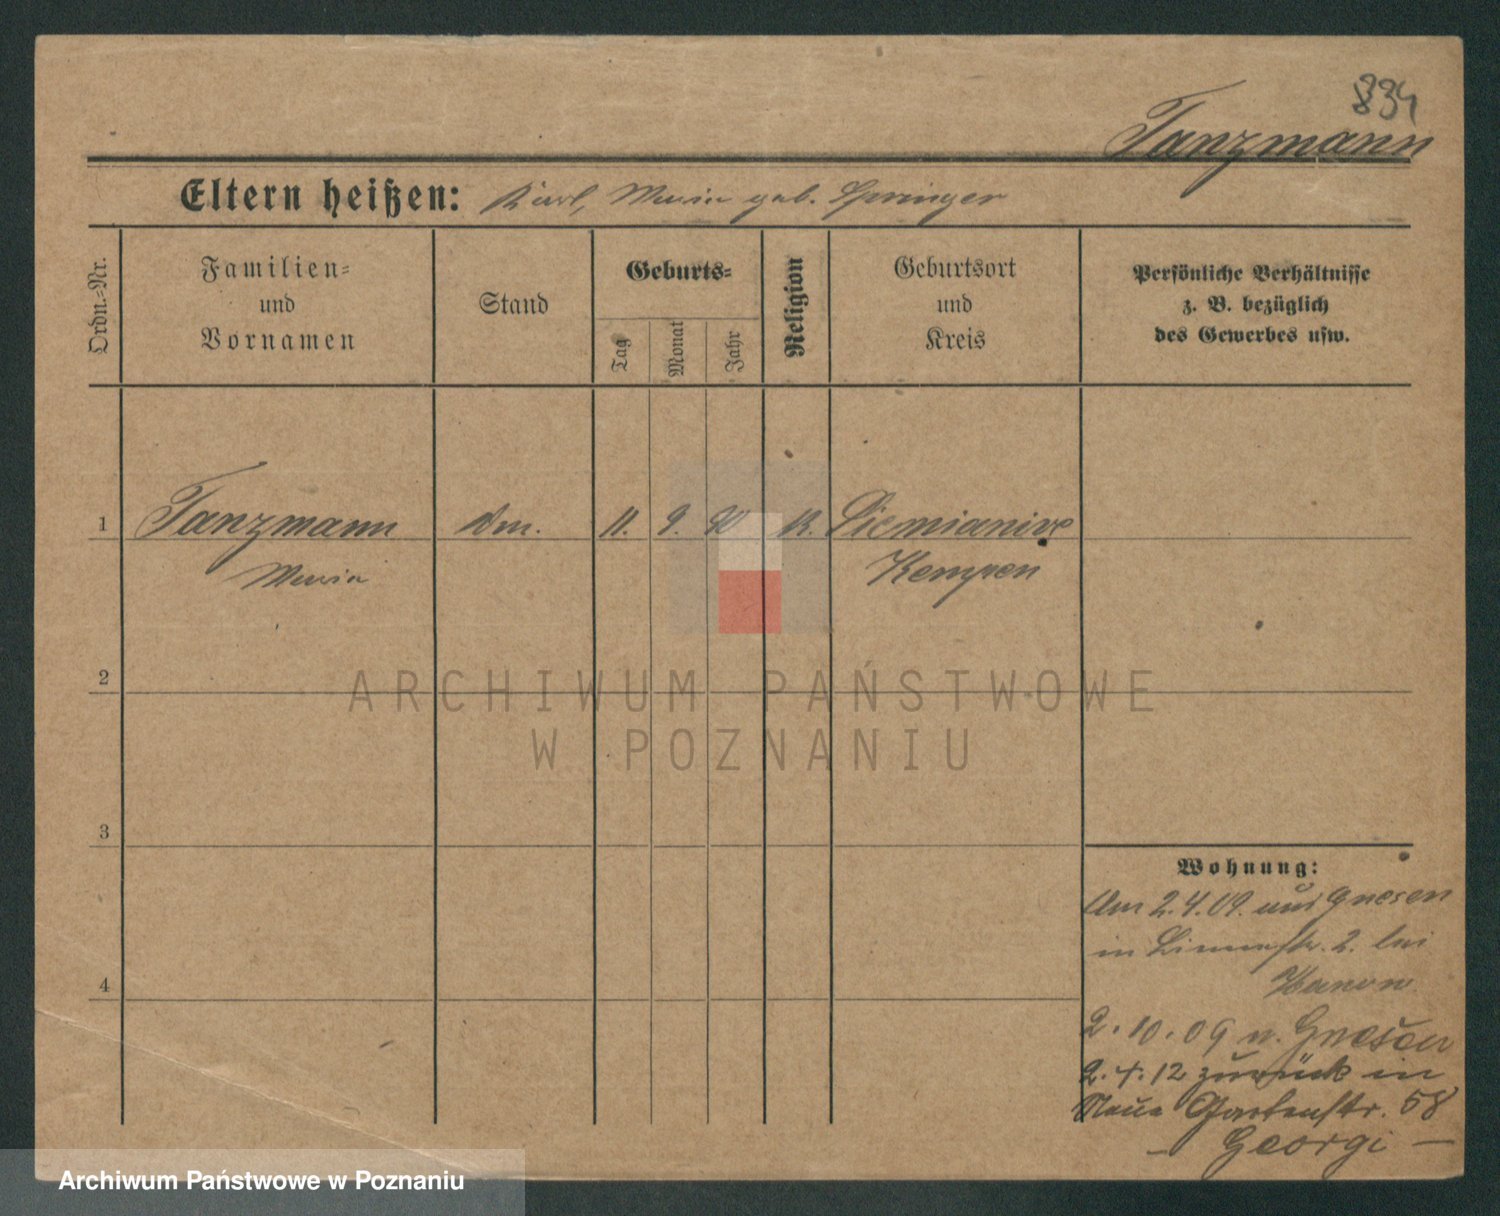 834
Tanzmann
Eltern heißen: Karl, Maria geb. Springer
Ordn.-Nr.
Familien-
und
Vornamen
Stand
Geburts-
Tag
Monat
Jahr
Religion
Geburtsort
und
Kreis
Persönliche Verhältnisse
z. B. bezüglich
des Gewerbes usw.
1 Tanzmann 11. 9. 90 K. Siemianice
Maria Kempen
2
ARCHIWUM PAŃSTWOWE
W POZNANIU
3
Wohnung:
Am 2.4.09. aus Gnesen
in 2. bei
2.10.09 n. Gnesen
4
2.4.12 zurück in
Neue Gartenstr. 58
– Georgi –
Archiwum Państwowe w Poznaniu